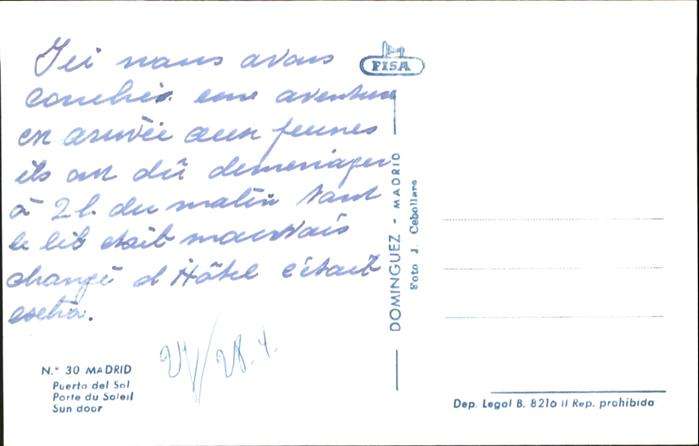 Ici nous avons
couchés une aventure
en arrivée aux jeunes
ils ont dû demenager
à 2 h. du matin tant
le lit était mauvais
changé d'Hôtel c'était
extra.
27/28.4.
FISA
DOMINGUEZ - MADRID
Foto J. Cebollero
N.° 30 MADRID
Puerta del Sol
Porte du Soleil
Sun door
Dep. Legal B. 8216 II Rep. prohibida